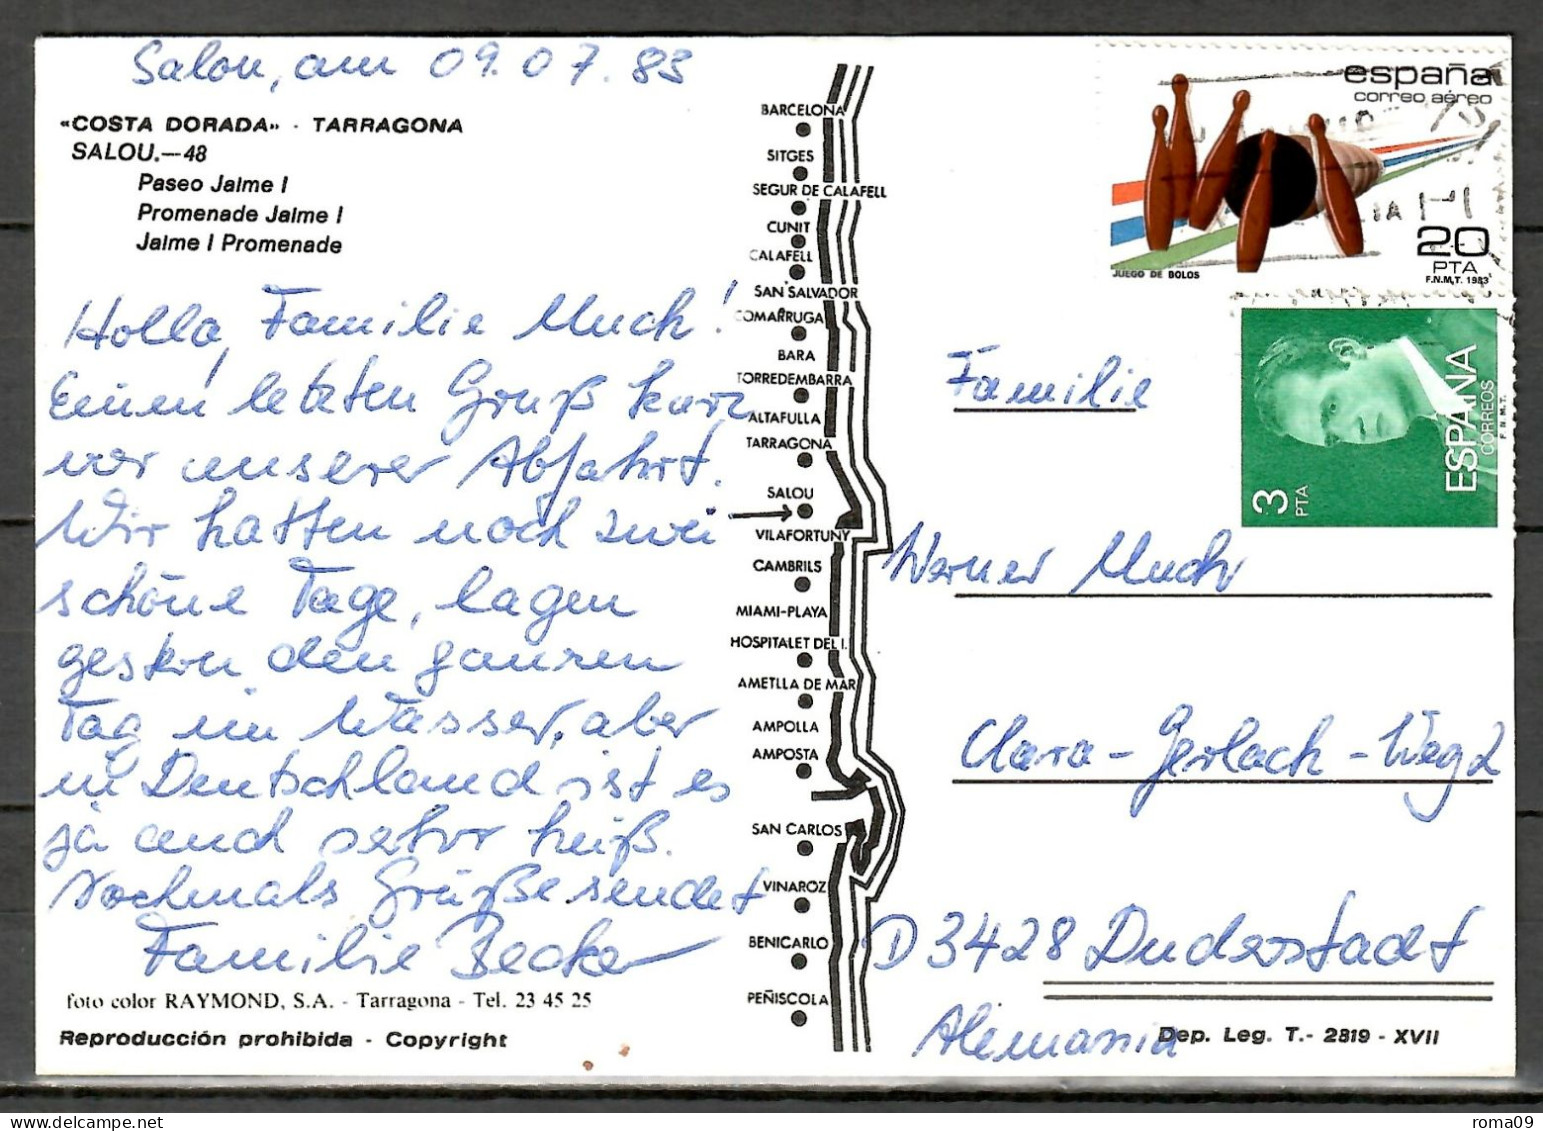 Salou, am 09.07.83
«COSTA DORADA» · TARRAGONA
SALOU.—48
Paseo Jaime I
Promenade Jaime I
Jaime I Promenade
Holla, Familie Much!
Einen letzten Gruß kurz
vor unserer Abfahrt.
Wir hatten noch zwei
schöne Tage, lagen
gestern den ganzen
Tag im Wasser, aber
in Deutschland ist es
ja auch sehr heiß.
Nochmals Grüße sendet
Familie Becker
foto color RAYMOND, S.A. - Tarragona - Tel. 23 45 25
Reproducción prohibida - Copyright
BARCELONA
SITGES
SEGUR DE CALAFELL
CUNIT
CALAFELL
SAN SALVADOR
COMARRUGA
BARA
TORREDEMBARRA
ALTAFULLA
TARRAGONA
SALOU
VILAFORTUNY
CAMBRILS
MIAMI-PLAYA
HOSPITALET DEL I.
AMETLLA DE MAR
AMPOLLA
AMPOSTA
SAN CARLOS
VINAROZ
BENICARLO
PEÑISCOLA
españa
correo aéreo
20
PTA
JUEGO DE BOLOS
F.N.M.T. 1983
ESPAÑA
CORREOS
F.N.M.T.
3
PTA
Familie
Werner Much
Clara-Gerlach-Weg 2
D 3428 Duderstadt
Alemania
Dep. Leg. T.- 2819 - XVII
roma09